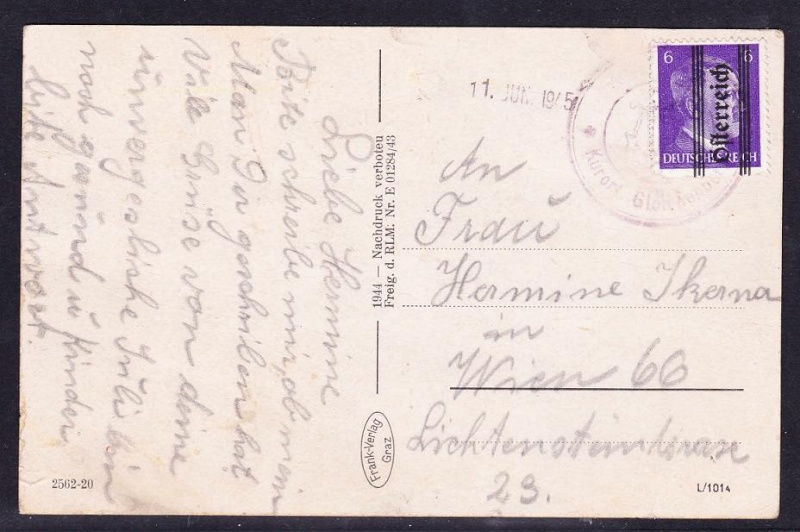 Liebe Hermine
Bite schreibe mir, ob mein
Man Dir geschriben hat
Vile Grüse von deine
unvergesliche Juli bin
noch gesund u Kinder
bite Antwort.
1944 — Nachdruck verboten
Freig. d. RLM: Nr. E 01284/43
Frank-Verlag
Graz
2562-20
11. JUN. 1945
Kurort
6 6
Österreich
DEUTSCHES REICH
An
Frau
Hermine Ikerna
in
Wien 66
Lichtensteinstrase
23.
L/1014